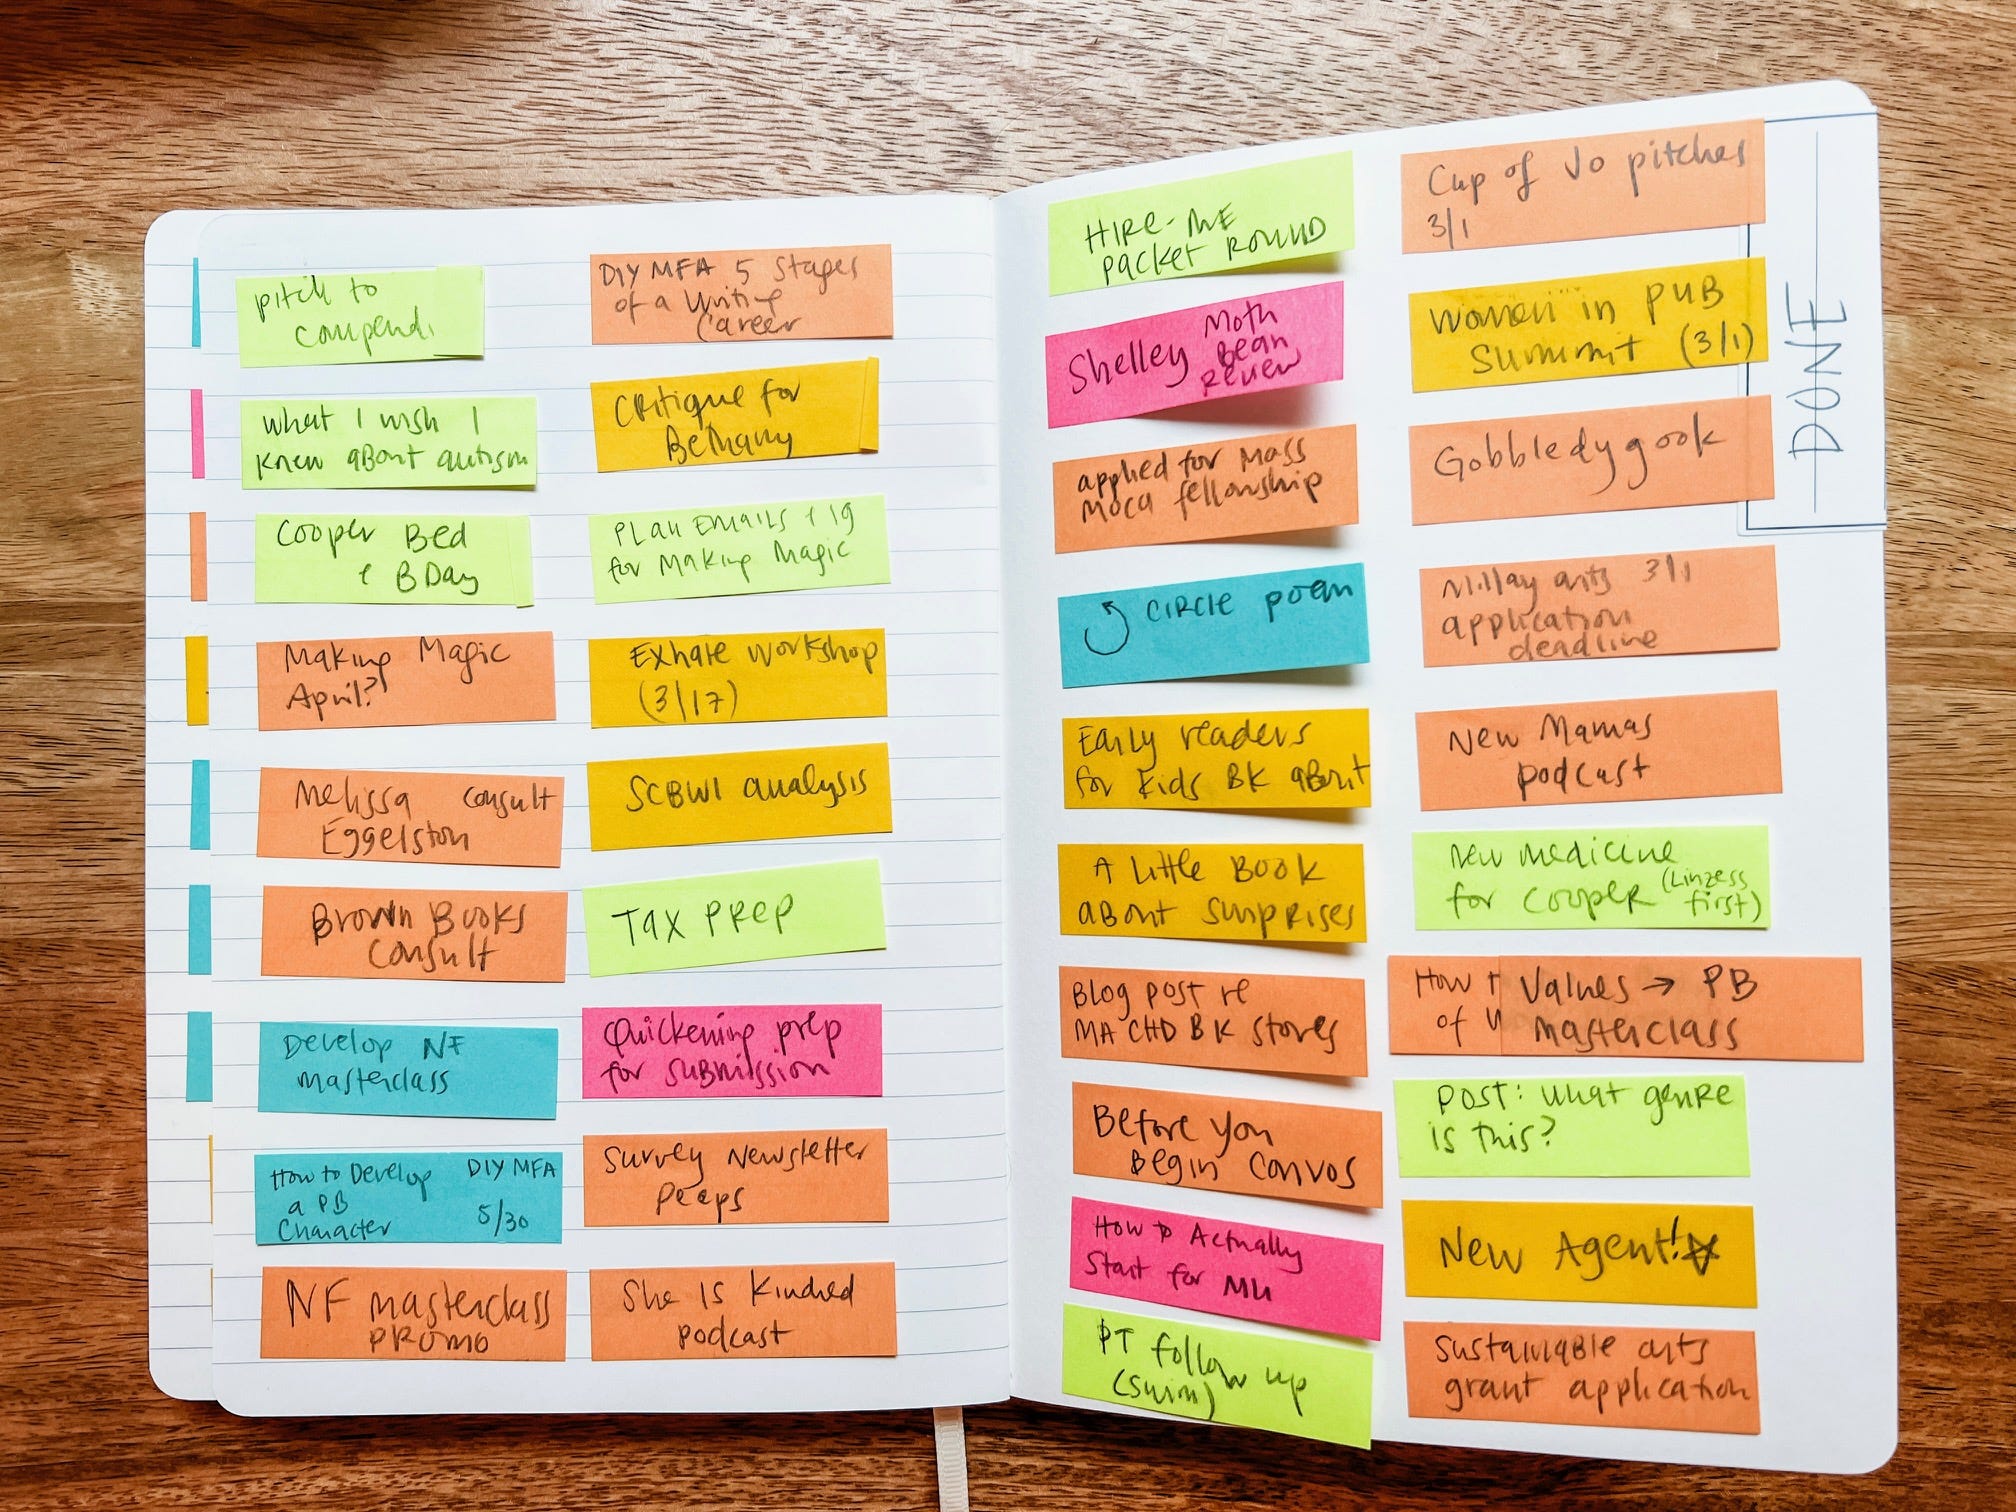 pitch to
compendi
What I wish I
knew about autism
Cooper Bed
& BDay
Making Magic
April?
Melissa consult
Eggelston
Brown Books
consult
Develop NF
masterclass
How to Develop DIY MFA
a PB
Character 5/30
NF masterclass
PROMO
DIY MFA 5 Stages
of a Writing
Career
Critique for
Bethany
Plan Emails + ig
for Making Magic
Exhale workshop
(3/17)
SCBWI analysis
Tax PRep
Quickening prep
for submission
Survey Newsletter
Peeps
She Is Kindred
podcast
HIRE-ME
packet ROUND
Shelley Moth
Bean
Review
applied for Mass
Moca fellowship
CIRCle poem
Early readers
for Kids BK about
A little Book
about Surprises
Blog post re
MA CHD BK Stores
Before you
Begin Convos
How to Actually
Start for MU
PT follow up
(swim)
Cup of Jo pitches
3/1
Women in PUB
Summit (3/1)
Gobbledygook
Millay arts 3/1
application
deadline
New Mamas
podcast
New medicine
for Cooper (Linzess
first)
How t Values → PB
of W masterclass
Post: What genre
is this?
New Agent!
Sustainable arts
grant application
DONE